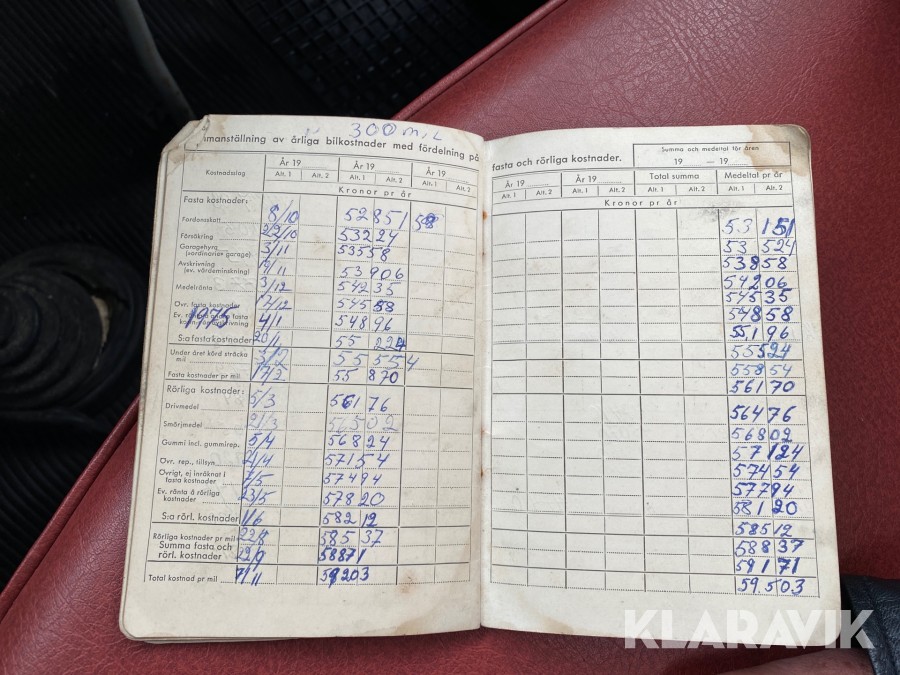 300 mil
manställning av årliga bilkostnader med fördelning på
Kostnadsslag År 19 År 19 År 19
Alt. 1 Alt. 2 Alt. 1 Alt. 2 Alt. 1 Alt. 2
Kronor pr år
Fasta kostnader:
Fordonsskatt 8/10 52851
Försäkring 22/10 53224
Garagehyra 3/11 53558
(»ordinarie» garage)
Avskrivning 11 53906
(ev. värdeminskning)
Medelränta 3/12 54235
Övr. fasta kostnader /12 54558
1975
Ev. fasta 4/1 54896
avskrivning
S:a fasta kostnader 20/1 55 224
Under året körd sträcka 5/2 55554
mil
Fasta kostnader pr mil 17/2 55 870
Rörliga kostnader:
Drivmedel 5/3 56176
Smörjmedel 21/3 56502
Gummi incl. gummirep. 5/4 56824
Övr. rep., tillsyn 21/4 57154
Övrigt, ej inräknat i /5 57494
fasta kostnader
Ev. ränta å rörliga 23/5 57820
kostnader
S:a rörl. kostnader 1/6 58212
Rörliga kostnader pr mil 22/8 58537
Summa fasta och 22/9 58871
rörl. kostnader
Total kostnad pr mil 7/11 59203
fasta och rörliga kostnader.
Summa och medeltal för åren
19 — 19
År 19 År 19 Total summa Medeltal pr år
Alt. 1 Alt. 2 Alt. 1 Alt. 2 Alt. 1 Alt. 2 Alt. 1 Alt. 2
Kronor pr år
53 151
53 524
53858
54206
54535
54858
55196
55524
55854
56170
56476
56802
57124
57454
57794
58120
58512
58837
59171
59.503
KLARAVIK